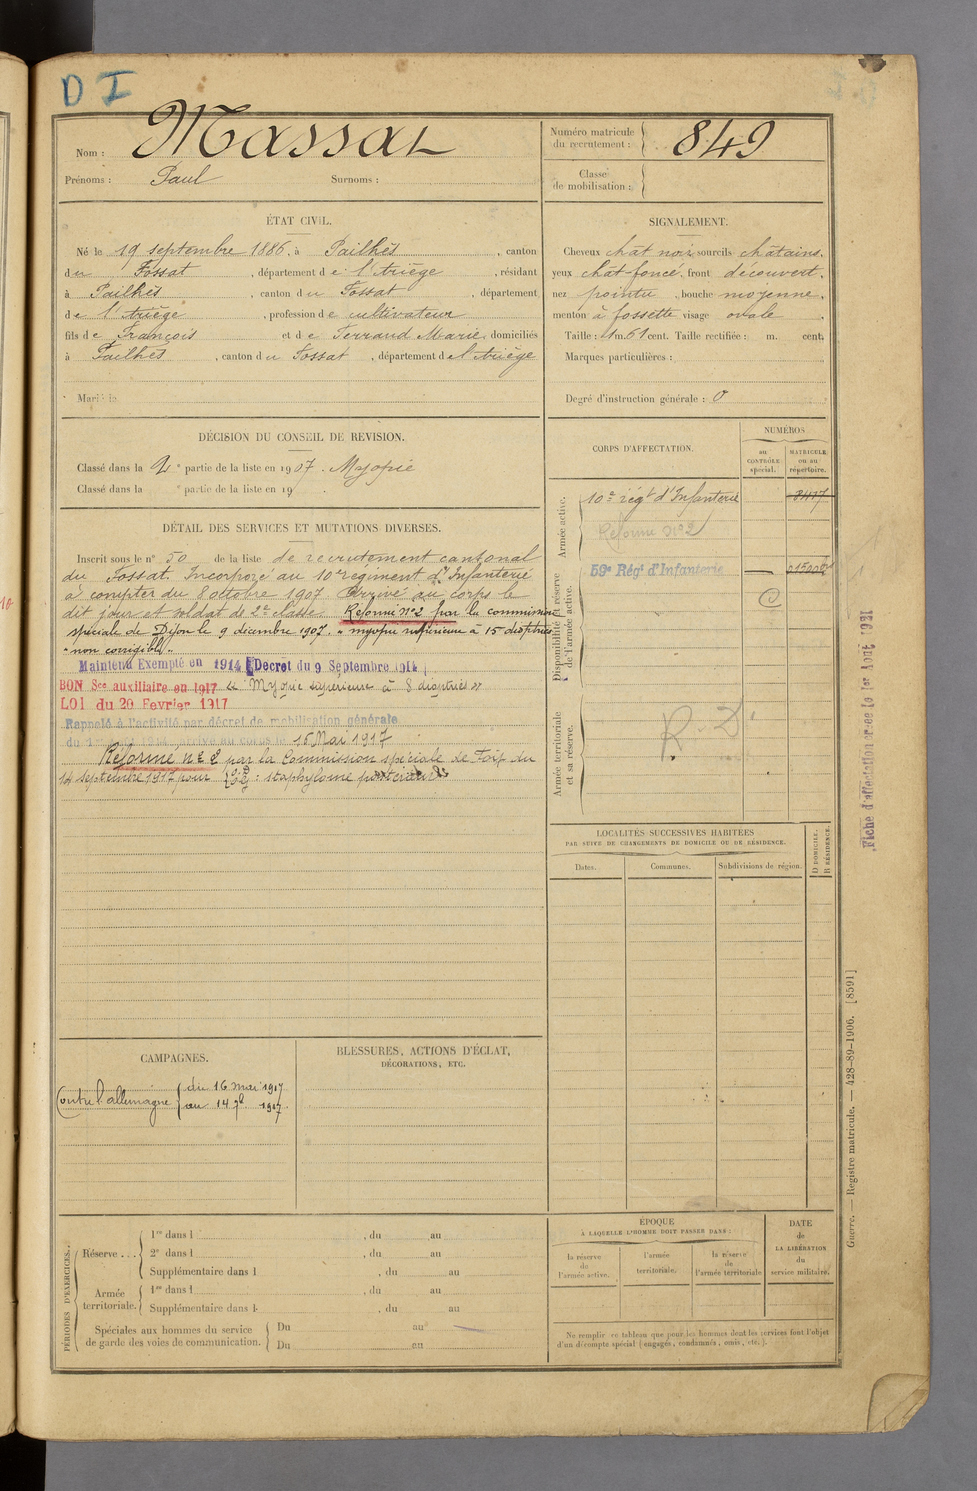 D I
Nom : Massat
Prénoms : Paul Surnoms :
Numéro matricule
du recrutement : 849
Classe
de mobilisation :
ÉTAT CIVIL.
Né le 19 septembre 1886, à Pailhès, canton
du Fossat, département de l'Ariège, résidant
à Pailhès, canton du Fossat, département
de l'Ariège, profession de cultivateur
fils de François et de Ferrand Marie domiciliés
à Pailhès, canton du Fossat, département de l'Ariège
Marié le
SIGNALEMENT.
Cheveux chat noir, sourcils châtains,
yeux chat-foncé, front découvert,
nez pointu, bouche moyenne,
menton à fossette visage ovale
Taille : 1 m. 61 cent. Taille rectifiée : m. cent.
Marques particulières :
Degré d'instruction générale : 0
DÉCISION DU CONSEIL DE REVISION.
Classé dans la 2e partie de la liste en 1907. Myopie
Classé dans la e partie de la liste en 19 .
DÉTAIL DES SERVICES ET MUTATIONS DIVERSES.
Inscrit sous le n° 50 de la liste de recrutement cantonal
du Fossat. Incorporé au 10e régiment d'Infanterie
à compter du 8 octobre 1907 Arrivé au corps le
dit jour et soldat de 2e classe. Réformé n° 2 par la commission
spéciale de Dijon le 9 décembre 1907. "myopie supérieure à 15 dioptries
"non corrigible".
Maintenu Exempté en 1914 (Decret du 9 Septembre 1914)
BON Sce auxiliaire en 1917 "Myopie supérieure à 8 dioptries"
LOI du 20 Fevrier 1917
Rappelé à l'activité par décret de mobilisation générale
du 1er août 1914 arrivé au corps le 16 Mai 1917
Réformé n° 2 par la Commission spéciale de Foix du
14 septembre 1917 pour : staphylome postérieur
CORPS D'AFFECTATION.
NUMÉROS
au
CONTRÔLE
spécial.
MATRICULE
ou au
répertoire.
Armée active.
10e régt d'Infanterie 3417
Réformé n° 2
Disponibilité et réserve
de l'armée active.
59e Régt d'Infanterie
Armée territoriale
et sa réserve.
R. D.
LOCALITÉS SUCCESSIVES HABITÉES
PAR SUITE DE CHANGEMENTS DE DOMICILE OU DE RÉSIDENCE.
Dates. Communes. Subdivisions de région.
D DOMICILE.
R RÉSIDENCE.
Fiche d'affectation créée le 1er Août 1921
CAMPAGNES.
Contre l'allemagne du 16 mai 1917
au 14 7bre 1917.
BLESSURES, ACTIONS D'ÉCLAT,
DÉCORATIONS, ETC.
Guerre. — Registre matricule. — 428-89-1906. [8591]
PÉRIODES D'EXERCICES.
Réserve... 1re dans l , du au
2e dans l , du au
Supplémentaire dans l , du au
Armée
territoriale. 1re dans l , du au
Supplémentaire dans l , du au
Spéciales aux hommes du service
de garde des voies de communication. Du au
Du au
ÉPOQUE
À LAQUELLE L'HOMME DOIT PASSER DANS :
la réserve
de
l'armée active.
l'armée
territoriale.
la réserve
de
l'armée territoriale
DATE
de
LA LIBÉRATION
du
service militaire.
Ne remplir ce tableau que pour les hommes dont les services font l'objet
d'un décompte spécial (engagés, condamnés, omis, etc.).